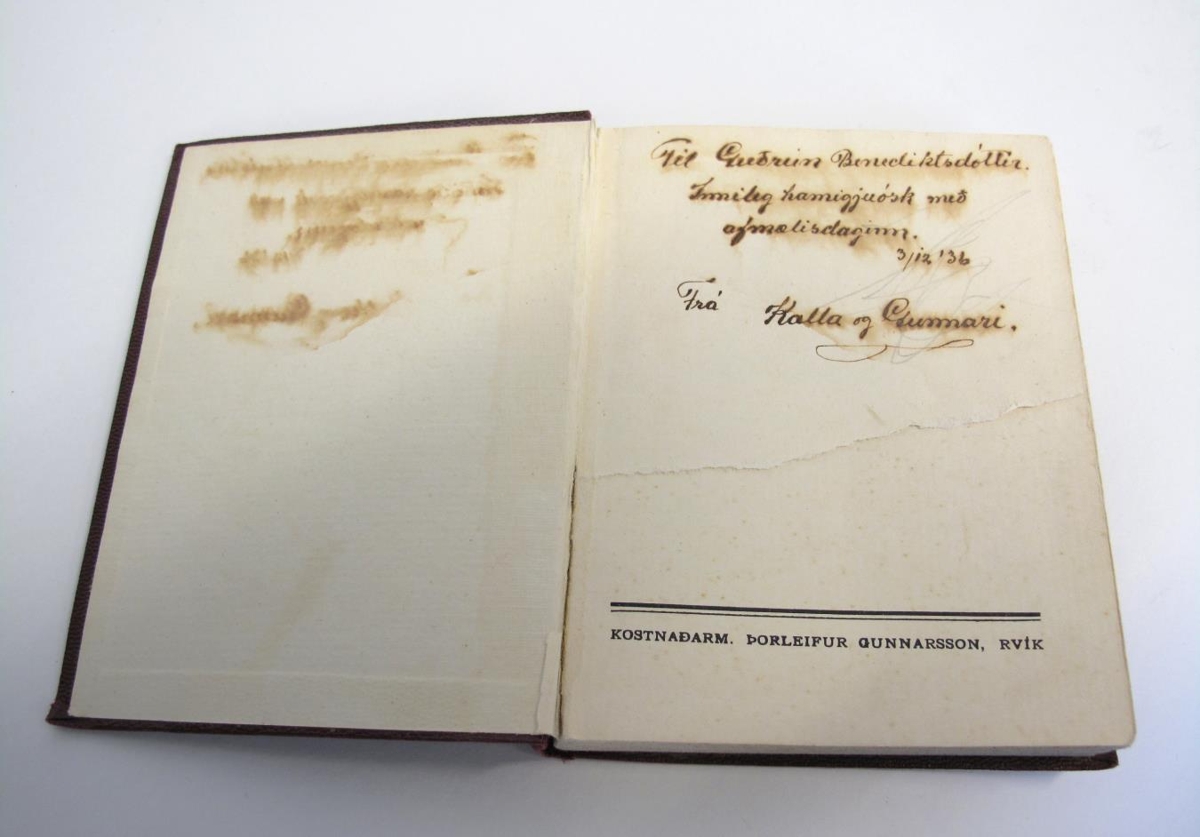 Til Guðrún Benediktsdóttir.
Innileg hamigjuósk með
afmælisdaginn.
3/12 '36
Frá Kalla og Gunnari.
KOSTNAÐARM. ÞORLEIFUR GUNNARSSON, RVÍK